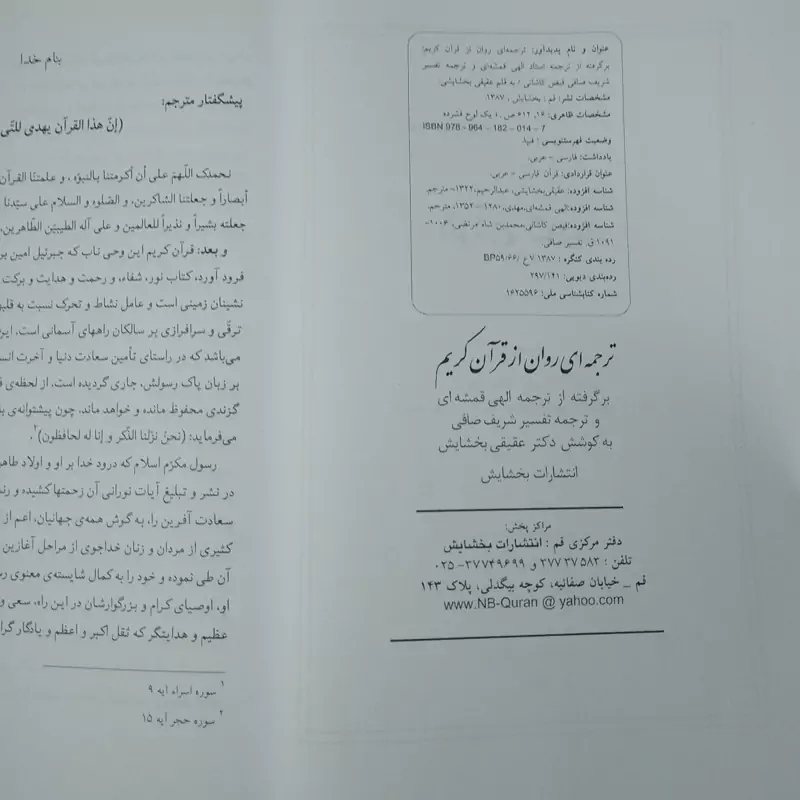 عنوان و نام پدیدآور: ترجمه‌ای روان از قرآن کریم:
برگرفته از ترجمه استاد الهی قمشه‌ای و ترجمه تفسیر
شریف صافی فیض کاشانی / به قلم عقیقی بخشایشی.
مشخصات نشر: قم : بخشایش ، ۱۳۸۷.
مشخصات ظاهری: ۱۶، ۶۱۲ ص. + یک لوح فشرده
ISBN 978 - 964 - 182 - 014 - 7
وضعیت فهرستنویسی : فیپا.
یادداشت: فارسی - عربی.
عنوان قراردادی: قرآن فارسی - عربی.
شناسه افزوده: عقیقی‌بخشایشی، عبدالرحیم،۱۳۲۲- مترجم.
شناسه افزوده:الهی قمشه‌ای،مهدی،۱۲۸۰-۱۳۵۲، مترجم.
شناسه افزوده:فیض کاشانی،محمدبن شاه مرتضی، ۱۰۰۶-
۱۰۹۱ ق. تفسیر صافی.
رده بندی کنگره : ۱۳۸۷ ۷ع /BP۵۹/۶۶
رده‌بندی دیویی: ۲۹۷/۱۴۱
شماره کتابشناسی ملی: ۱۶۲۵۵۹۶
ترجمه ای روان از قرآن کریم
برگرفته از ترجمه الهی قمشه ای
و ترجمه تفسیر شریف صافی
به کوشش دکتر عقیقی بخشایش
انتشارات بخشایش
مراکز پخش:
دفتر مرکزی قم : انتشارات بخشایش
تلفن : ۳۷۷۳۷۵۸۳ و ۳۷۷۴۹۶۹۹-۰۲۵
قم _ خیابان صفائیه، کوچه بیگدلی، پلاک ۱۴۳
www.NB-Quran @ yahoo.com
بنام خدا
پیشگفتار مترجم:
(إنّ هذا القرآن یهدی للتّی
نحمدک اللّهمّ علی أن أکرمتنا بالنبوّه ، و علمتنا القرآن
أبصاراً و جعلتنا الشاکرین، و الصّلوه و السلام علی سیّدنا
جعلته بشیراً و نذیراً للعالمین و علی آله الطیبیّن الطّاهرین،
و بعد: قرآن کریم این وحی ناب که جبرئیل امین بر
فرود آورده، کتاب نور، شفاء، و رحمت و هدایت و برکت
نشینان زمینی است و عامل نشاط و تحرک نسبت به
ترقّی و سرافرازی بر سالکان راههای آسمانی است. این
می‌باشد که در راستای تأمین سعادت دنیا و آخرت
بر زبان پاک رسولش، جاری گردیده است. از لحظه‌ی
گزندی محفوظ مانده و خواهد ماند، چون پیشتوانه‌ی
می‌فرماید: (نحنُ نزّلنا الذّکر و إنا له لحافظون)۲.
رسول مکرّم اسلام که درود خدا بر او و اولاد
در نشر و تبلیغ آیات نورانی آن زحمتها کشیده و
سعادت آفرین را، به گوش همه‌ی جهانیان، اعم از
کثیری از مردان و زنان خداجوی از مراحل آغازین
آن طی نموده و خود را به کمال شایسته‌ی معنوی
او، اوصیای کرام و بزرگوارشان در این راه، سعی و
عظیم و هدایتگر که ثقل اکبر و اعظم و یادگار
۱ سوره اسراء آیه ۹
۲ سوره حجر آیه ۱۵